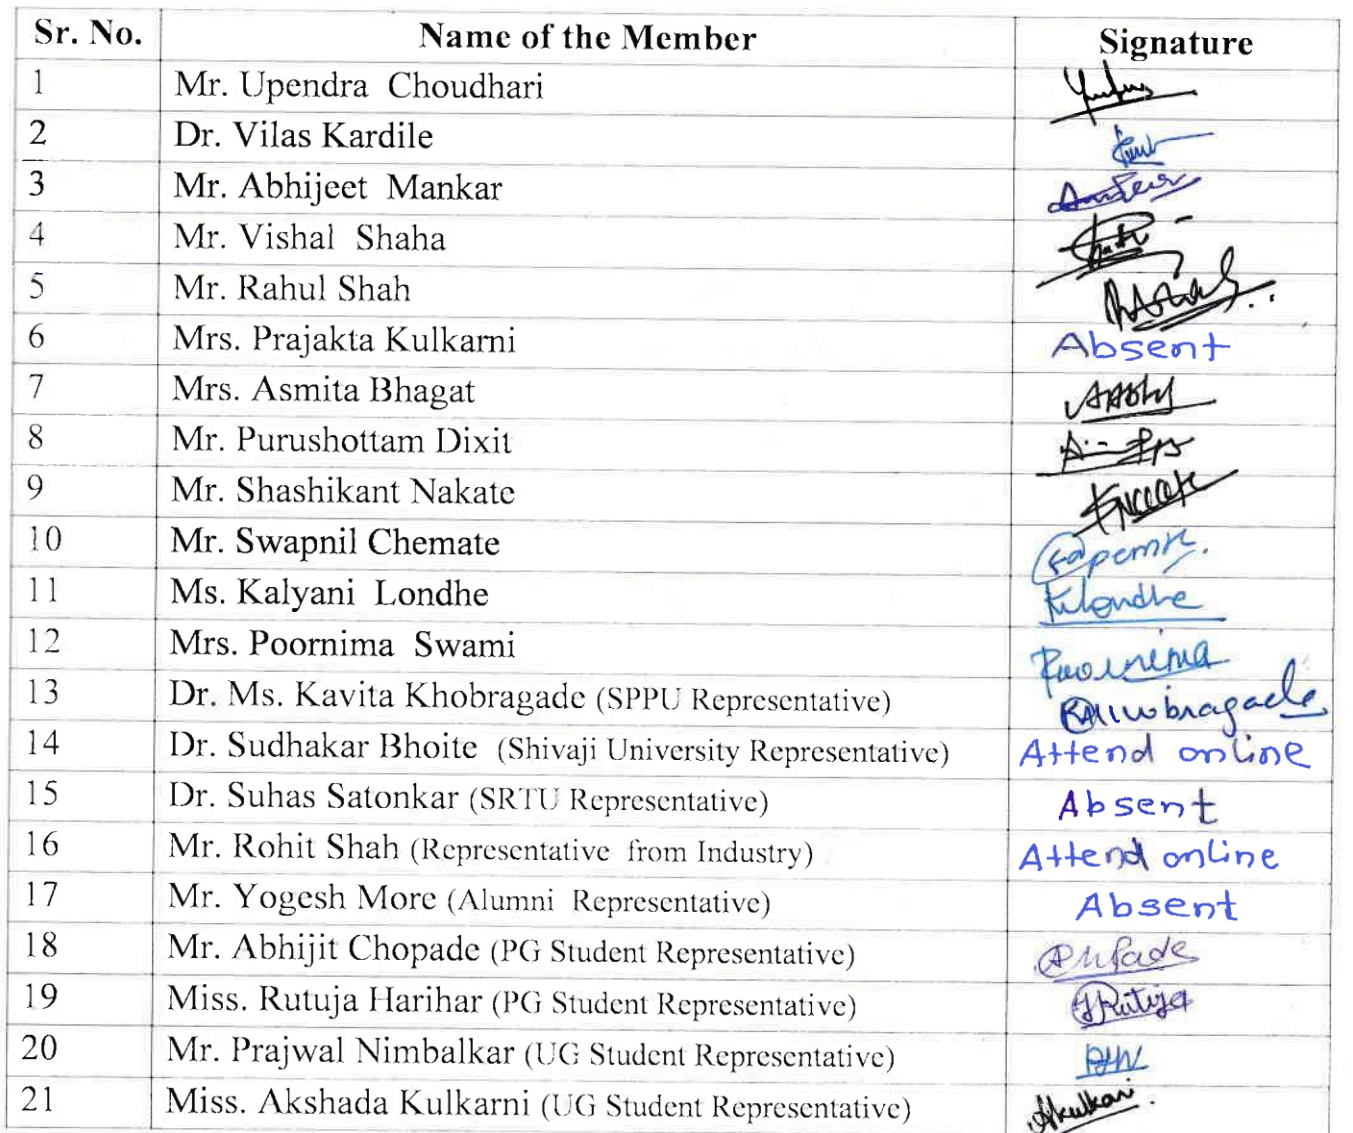 Sr. No. Name of the Member Signature
1 Mr. Upendra Choudhari
2 Dr. Vilas Kardile
3 Mr. Abhijeet Mankar
4 Mr. Vishal Shaha
5 Mr. Rahul Shah
6 Mrs. Prajakta Kulkarni Absent
7 Mrs. Asmita Bhagat
8 Mr. Purushottam Dixit
9 Mr. Shashikant Nakate
10 Mr. Swapnil Chemate
11 Ms. Kalyani Londhe Klondhe
12 Mrs. Poornima Swami Poornima
13 Dr. Ms. Kavita Khobragade (SPPU Representative)
14 Dr. Sudhakar Bhoite (Shivaji University Representative) Attend online
15 Dr. Suhas Satonkar (SRTU Representative) Absent
16 Mr. Rohit Shah (Representative from Industry) Attend online
17 Mr. Yogesh More (Alumni Representative) Absent
18 Mr. Abhijit Chopade (PG Student Representative)
19 Miss. Rutuja Harihar (PG Student Representative)
20 Mr. Prajwal Nimbalkar (UG Student Representative)
21 Miss. Akshada Kulkarni (UG Student Representative)